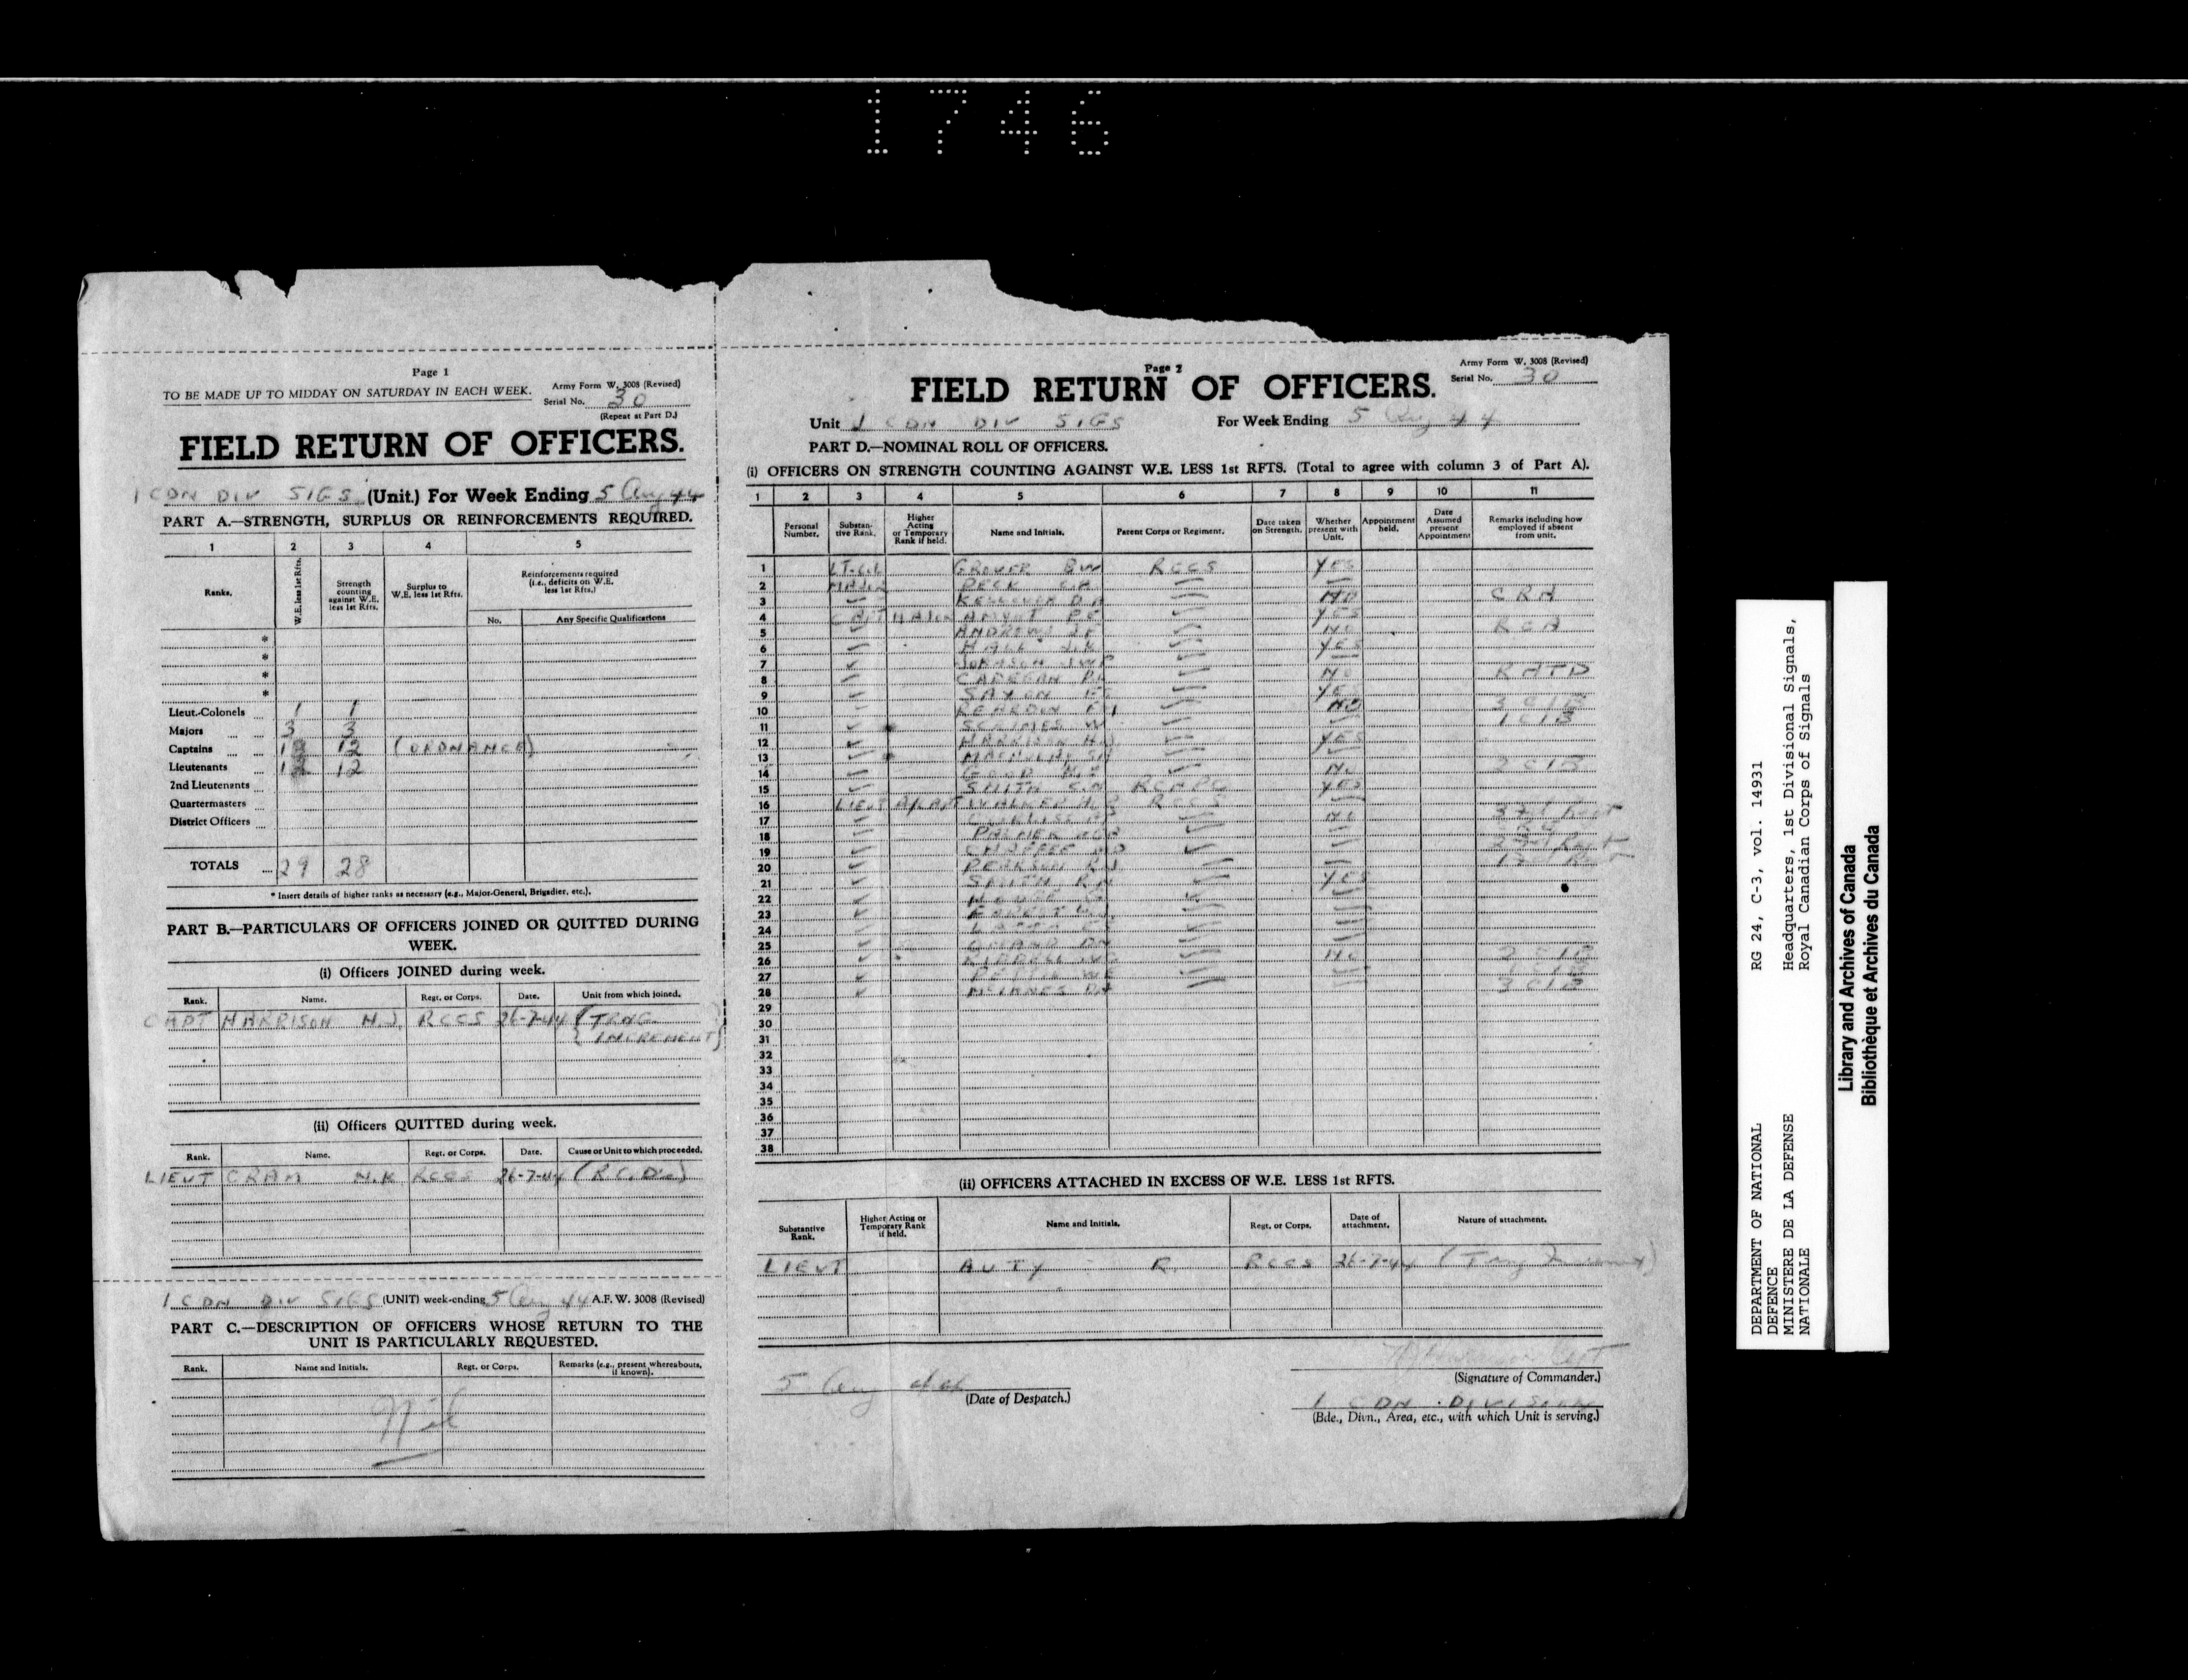 1746
Page 1
TO BE MADE UP TO MIDDAY ON SATURDAY IN EACH WEEK.
Army Form W. 3008 (Revised)
Serial No. 30
(Repeat at Part D.)
FIELD RETURN OF OFFICERS.
1 CDN DIV SIGS (Unit.) For Week Ending 5 Aug 44
PART A.—STRENGTH, SURPLUS OR REINFORCEMENTS REQUIRED.
1 2 3 4 5
Ranks.
W.E. less 1st Rfts.
Strength counting against W.E. less 1st Rfts.
Surplus to W.E. less 1st Rfts.
Reinforcements required (i.e., deficits on W.E. less 1st Rfts.)
No. Any Specific Qualifications
*
*
*
*
Lieut.-Colonels ... 1 1
Majors ... ... 3 3
Captains ... ... 12 (ORDNANCE)
Lieutenants ... 12
2nd Lieutenants ...
Quartermasters ...
District Officers ...
TOTALS ... 29 28
* Insert details of higher ranks as necessary (e.g., Major-General, Brigadier, etc.).
PART B.—PARTICULARS OF OFFICERS JOINED OR QUITTED DURING
WEEK.
(i) Officers JOINED during week.
Rank. Name. Regt. or Corps. Date. Unit from which joined.
CAPT HARRISON H.J. RCCS 26-7-44 (TRNG
INCREMENT)
(ii) Officers QUITTED during week.
Rank. Name. Regt. or Corps. Date. Cause or Unit to which proceeded.
LIEUT CRAM N.K RCCS 26-7-44
1 CDN DIV SIGS (UNIT) week-ending 5 Aug 44 A.F.W. 3008 (Revised)
PART C.—DESCRIPTION OF OFFICERS WHOSE RETURN TO THE
UNIT IS PARTICULARLY REQUESTED.
Rank. Name and Initials. Regt. or Corps. Remarks (e.g., present whereabouts, if known).
Nil
Page 2
Army Form W. 3008 (Revised)
Serial No. 30
FIELD RETURN OF OFFICERS.
Unit 1 CDN DIV SIGS For Week Ending 5 Aug 44
PART D.—NOMINAL ROLL OF OFFICERS.
(i) OFFICERS ON STRENGTH COUNTING AGAINST W.E. LESS 1st RFTS. (Total to agree with column 3 of Part A).
1 2 3 4 5 6 7 8 9 10 11
Personal Number.
Substantive Rank.
Higher Acting or Temporary Rank if held.
Name and Initials.
Parent Corps or Regiment.
Date taken on Strength.
Whether present with Unit.
Appointment held.
Date Assumed present Appointment
Remarks including how employed if absent from unit.
1 LT-COL GROVER RCCS YES
2 MAJOR PECK
3 NO CRA
4 CAPT MAJOR AMYOT YES
5 ANDREWS NO RCA
6 HALL YES
7 JOHNSON
8 NO
9 SAXON YES
10 REARDON NO 3 CIB
11 SCRIMES W 1 CIB
12 HARRISON HJ YES
13
14 GOOD NO 2 CIB
15 SMITH YES
16 LIEUT A/CAPT WALKER RCCS
17 NO
18 PALMER
19 CHAFFEE
20 PEARSON
21 SMITH YES
22
23
24
25
26 NO 2 CIB
27
28 McINNES 3 CIB
29
30
31
32
33
34
35
36
37
38
(ii) OFFICERS ATTACHED IN EXCESS OF W.E. LESS 1st RFTS.
Substantive Rank. Higher Acting or Temporary Rank if held. Name and Initials. Regt. or Corps. Date of attachment. Nature of attachment.
LIEUT AUTY RCCS 26-7-44
5 Aug 44
(Date of Despatch.)
(Signature of Commander.)
1 CDN DIVISION
(Bde., Divn., Area, etc., with which Unit is serving.)
DEPARTMENT OF NATIONAL
DEFENCE
MINISTERE DE LA DEFENSE
NATIONALE
RG 24, C-3, vol. 14931
Headquarters, 1st Divisional Signals,
Royal Canadian Corps of Signals
Library and Archives of Canada
Bibliothèque et Archives du Canada